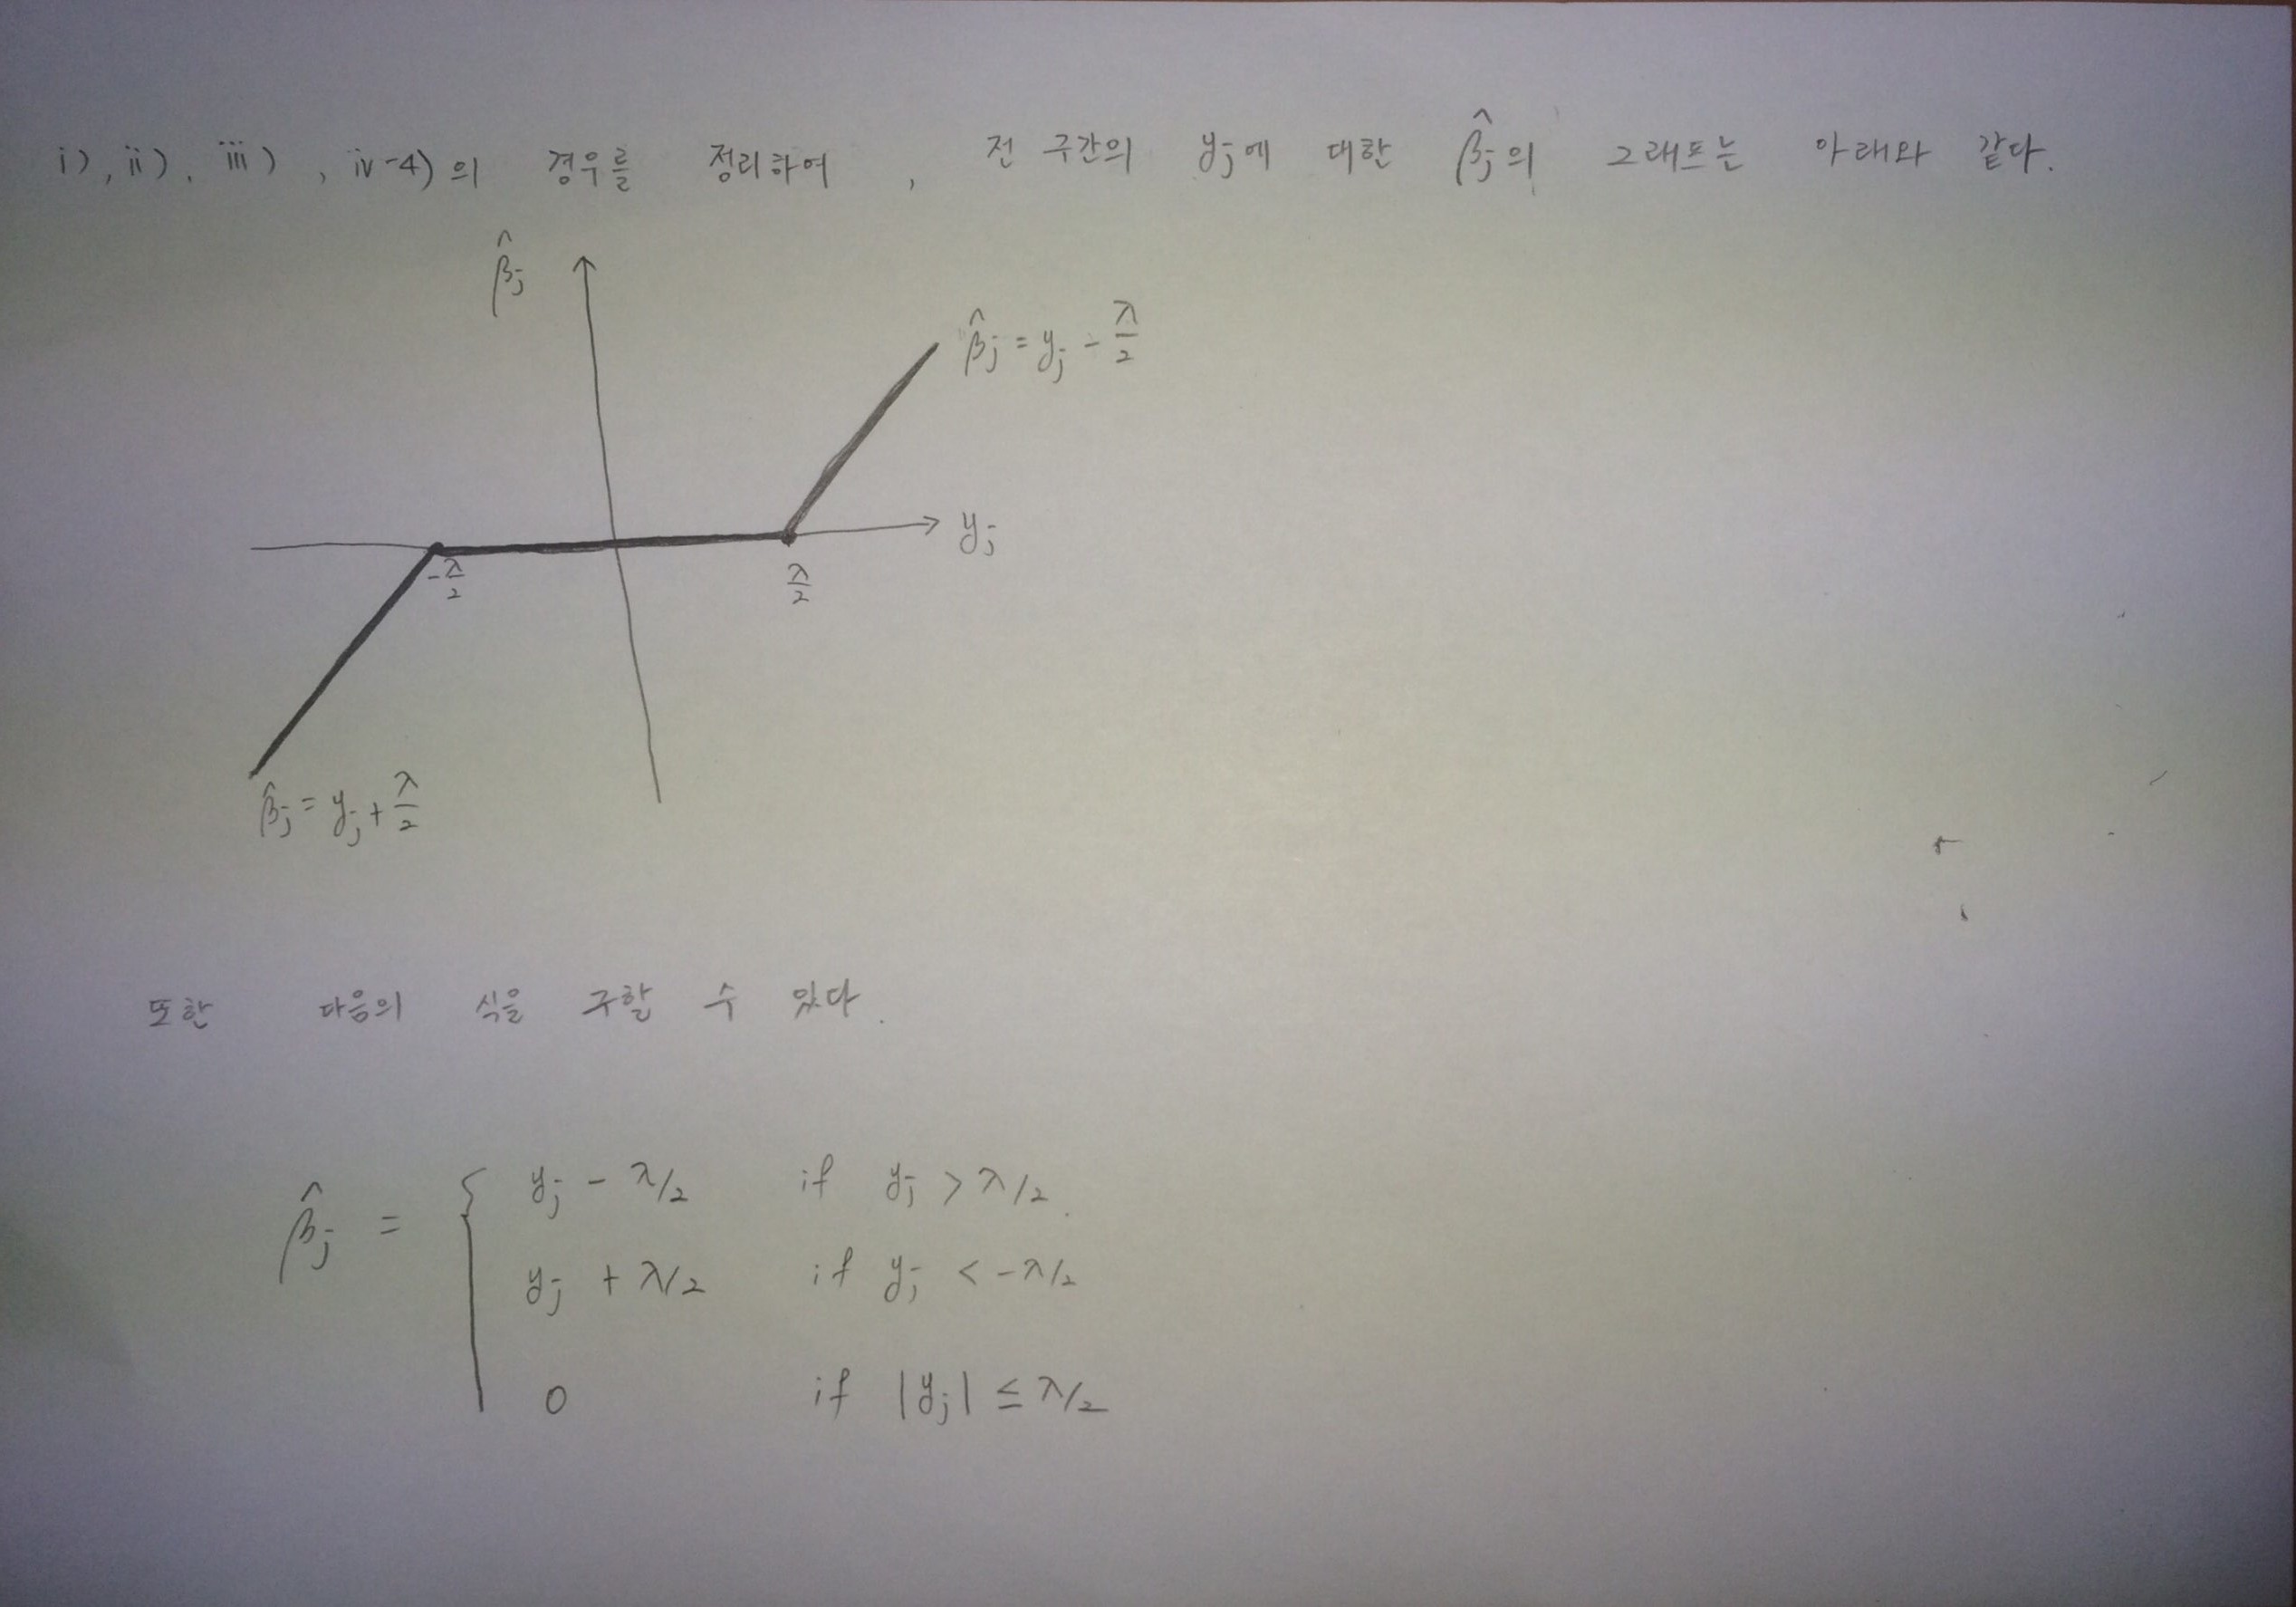 i), ii), iii), iv-4)의 경우를 정리하여, 전 구간의 yj에 대한 β̂j의 그래프는 아래와 같다.
β̂j
β̂j = yj - λ/2
yj
-λ/2
λ/2
β̂j = yj + λ/2
또한 다음의 식을 구할 수 있다.
β̂j = {
yj - λ/2 if yj > λ/2
yj + λ/2 if yj < -λ/2
0 if |yj| ≤ λ/2